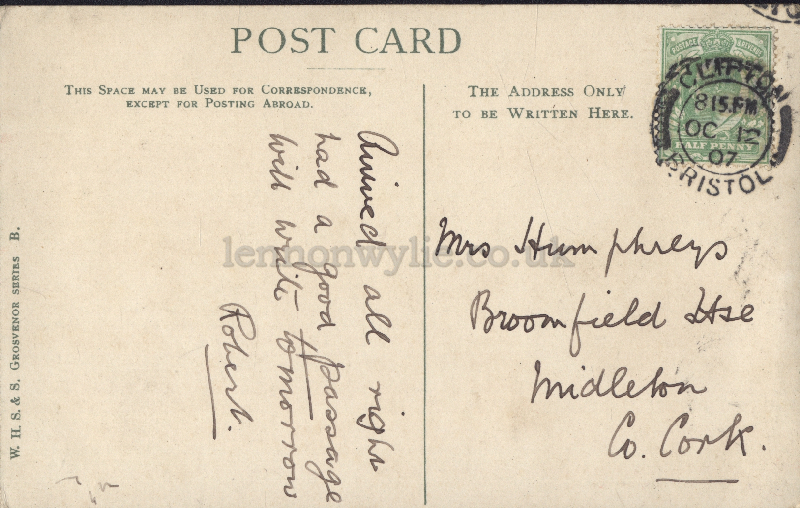 POST CARD
THIS SPACE MAY BE USED FOR CORRESPONDENCE,
EXCEPT FOR POSTING ABROAD.
THE ADDRESS ONLY
TO BE WRITTEN HERE.
POSTAGE
HALF PENNY
CLIFTON
8 15 PM
OC 12
07
BRISTOL
Arrived all right
had a good passage
will write tomorrow
Robert.
Mrs Humphreys
Broomfield Hse
Midleton
Co. Cork.
W. H. S. & S. GROSVENOR SERIES B.
lennonwylie.co.uk